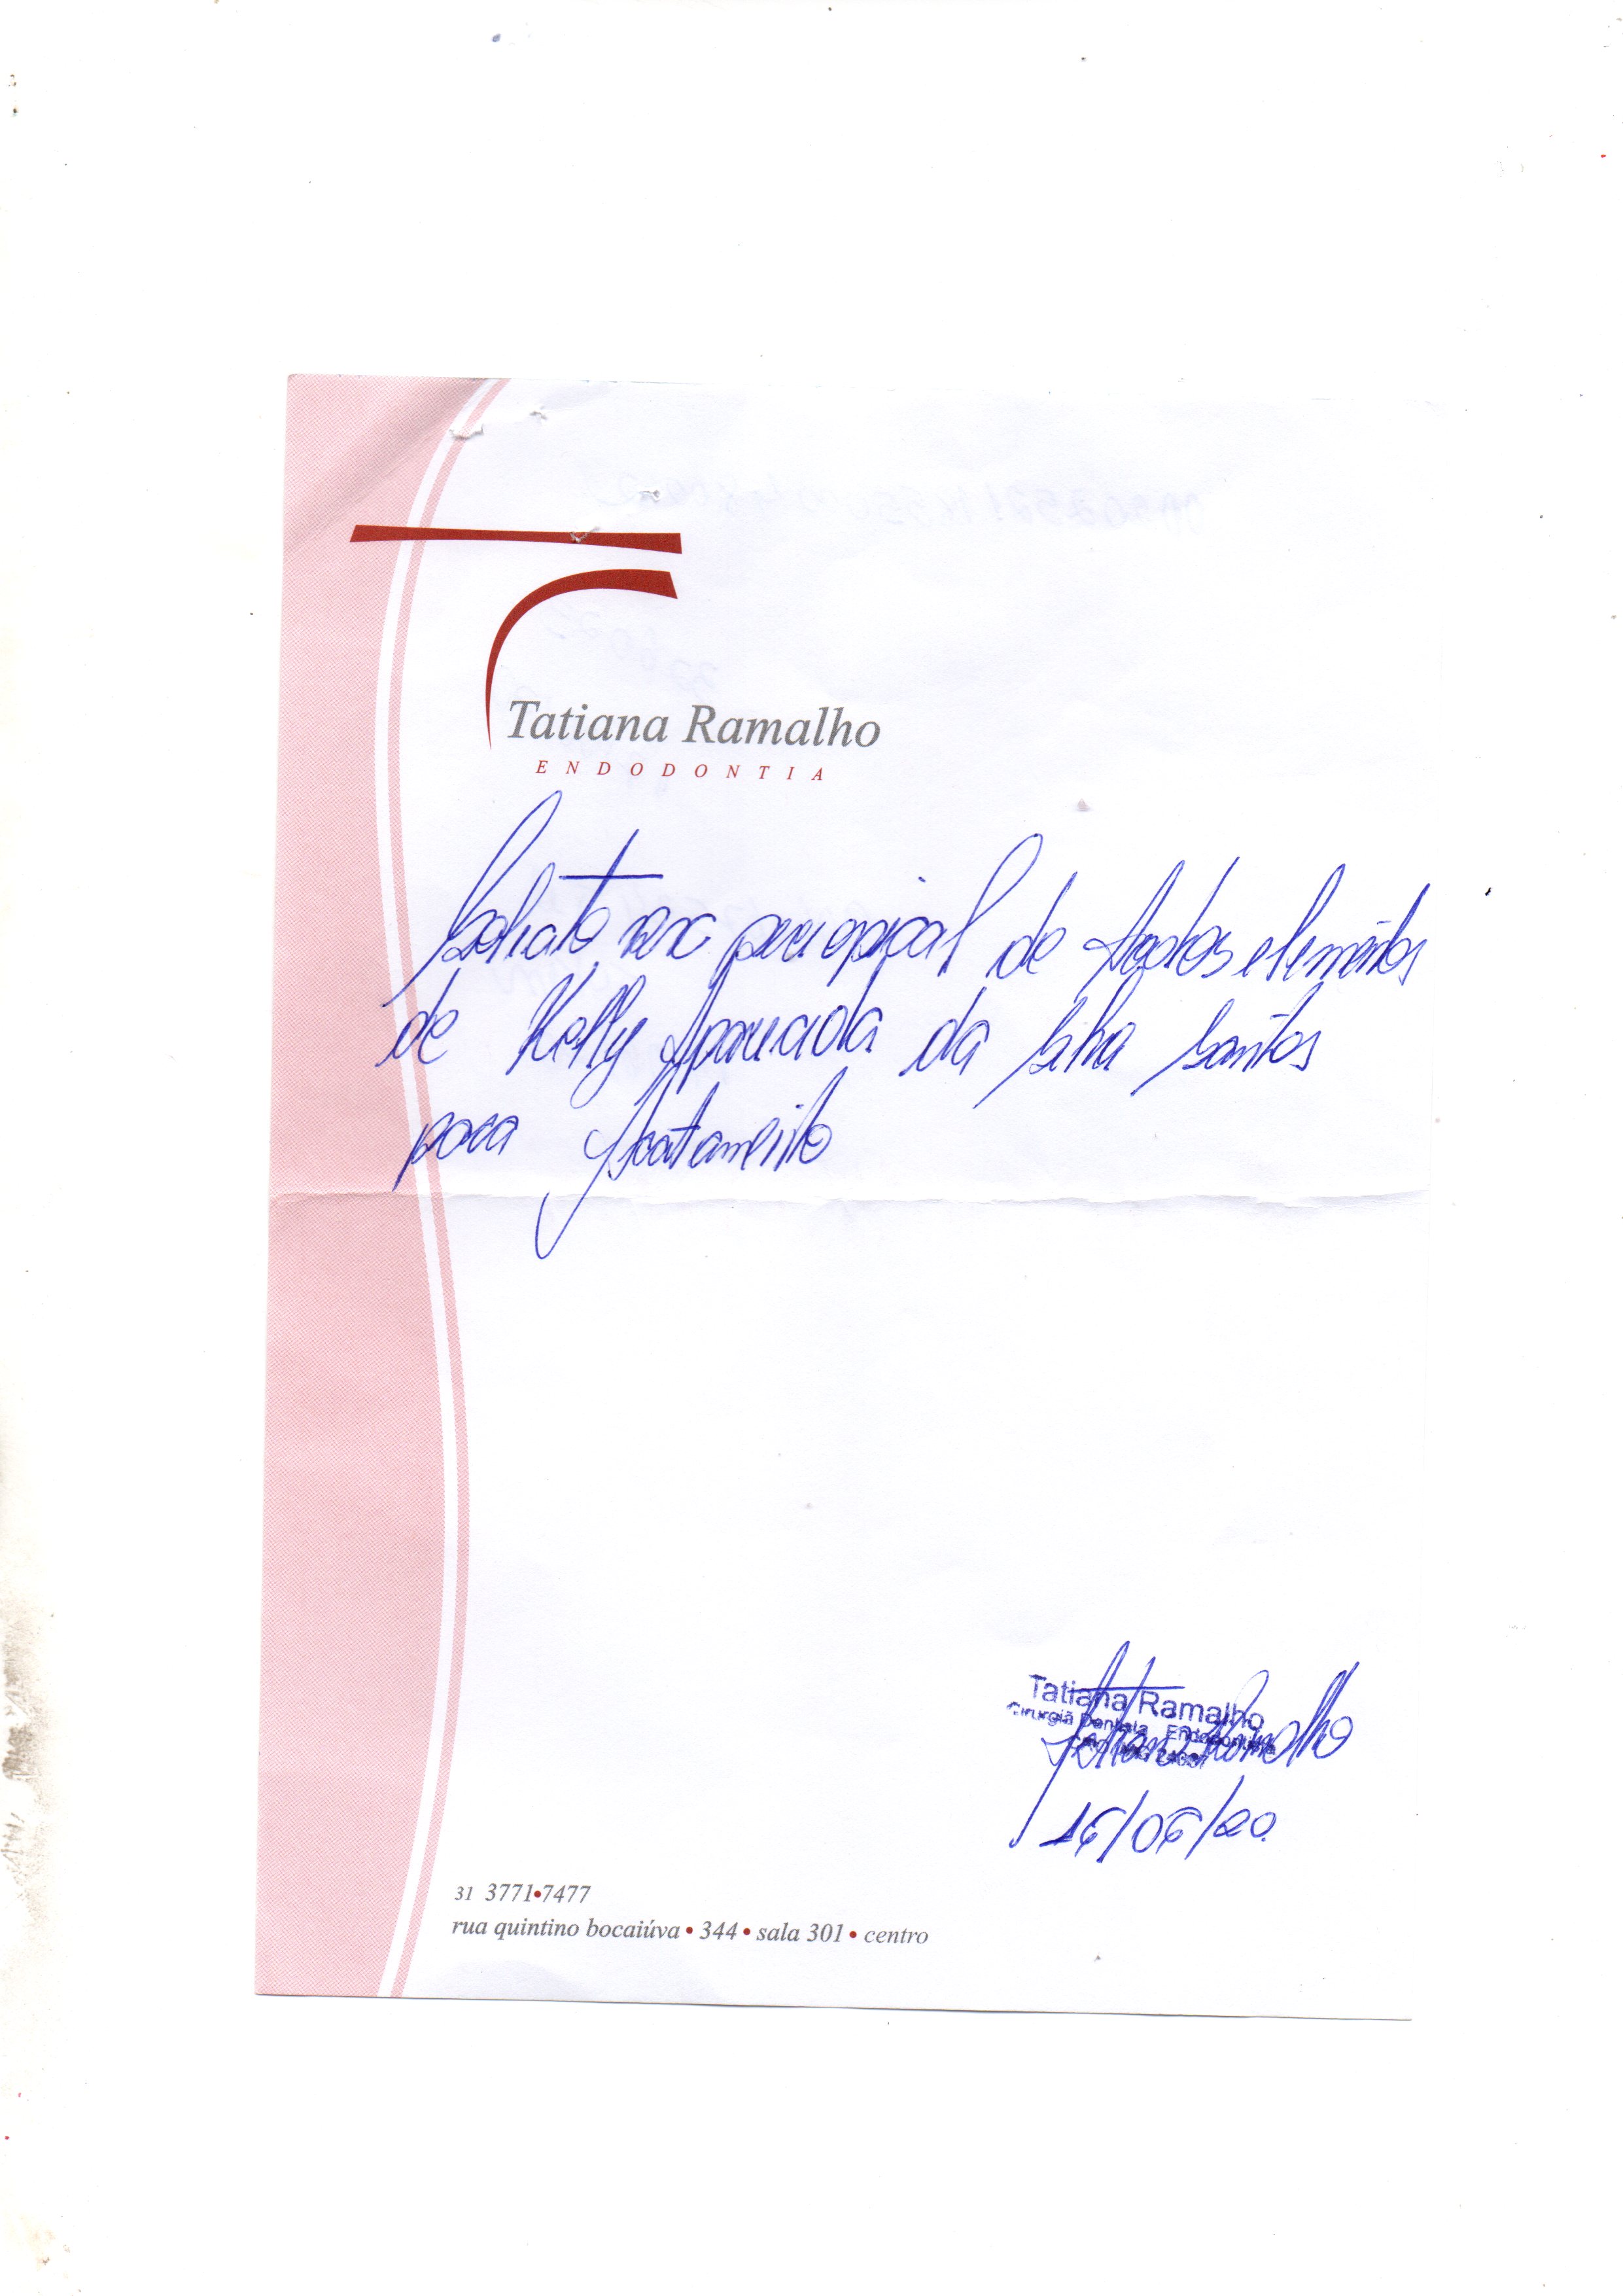 Tatiana Ramalho
ENDODONTIA
Solicito rx periapical de todos elementos
de Kelly Aparecida da Silva Santos
para tratamento
Tatiana Ramalho
Cirurgiã Dentista Endodontista
Tatiana Ramalho
16/06/20
31 3771•7477
rua quintino bocaiúva • 344 • sala 301 • centro